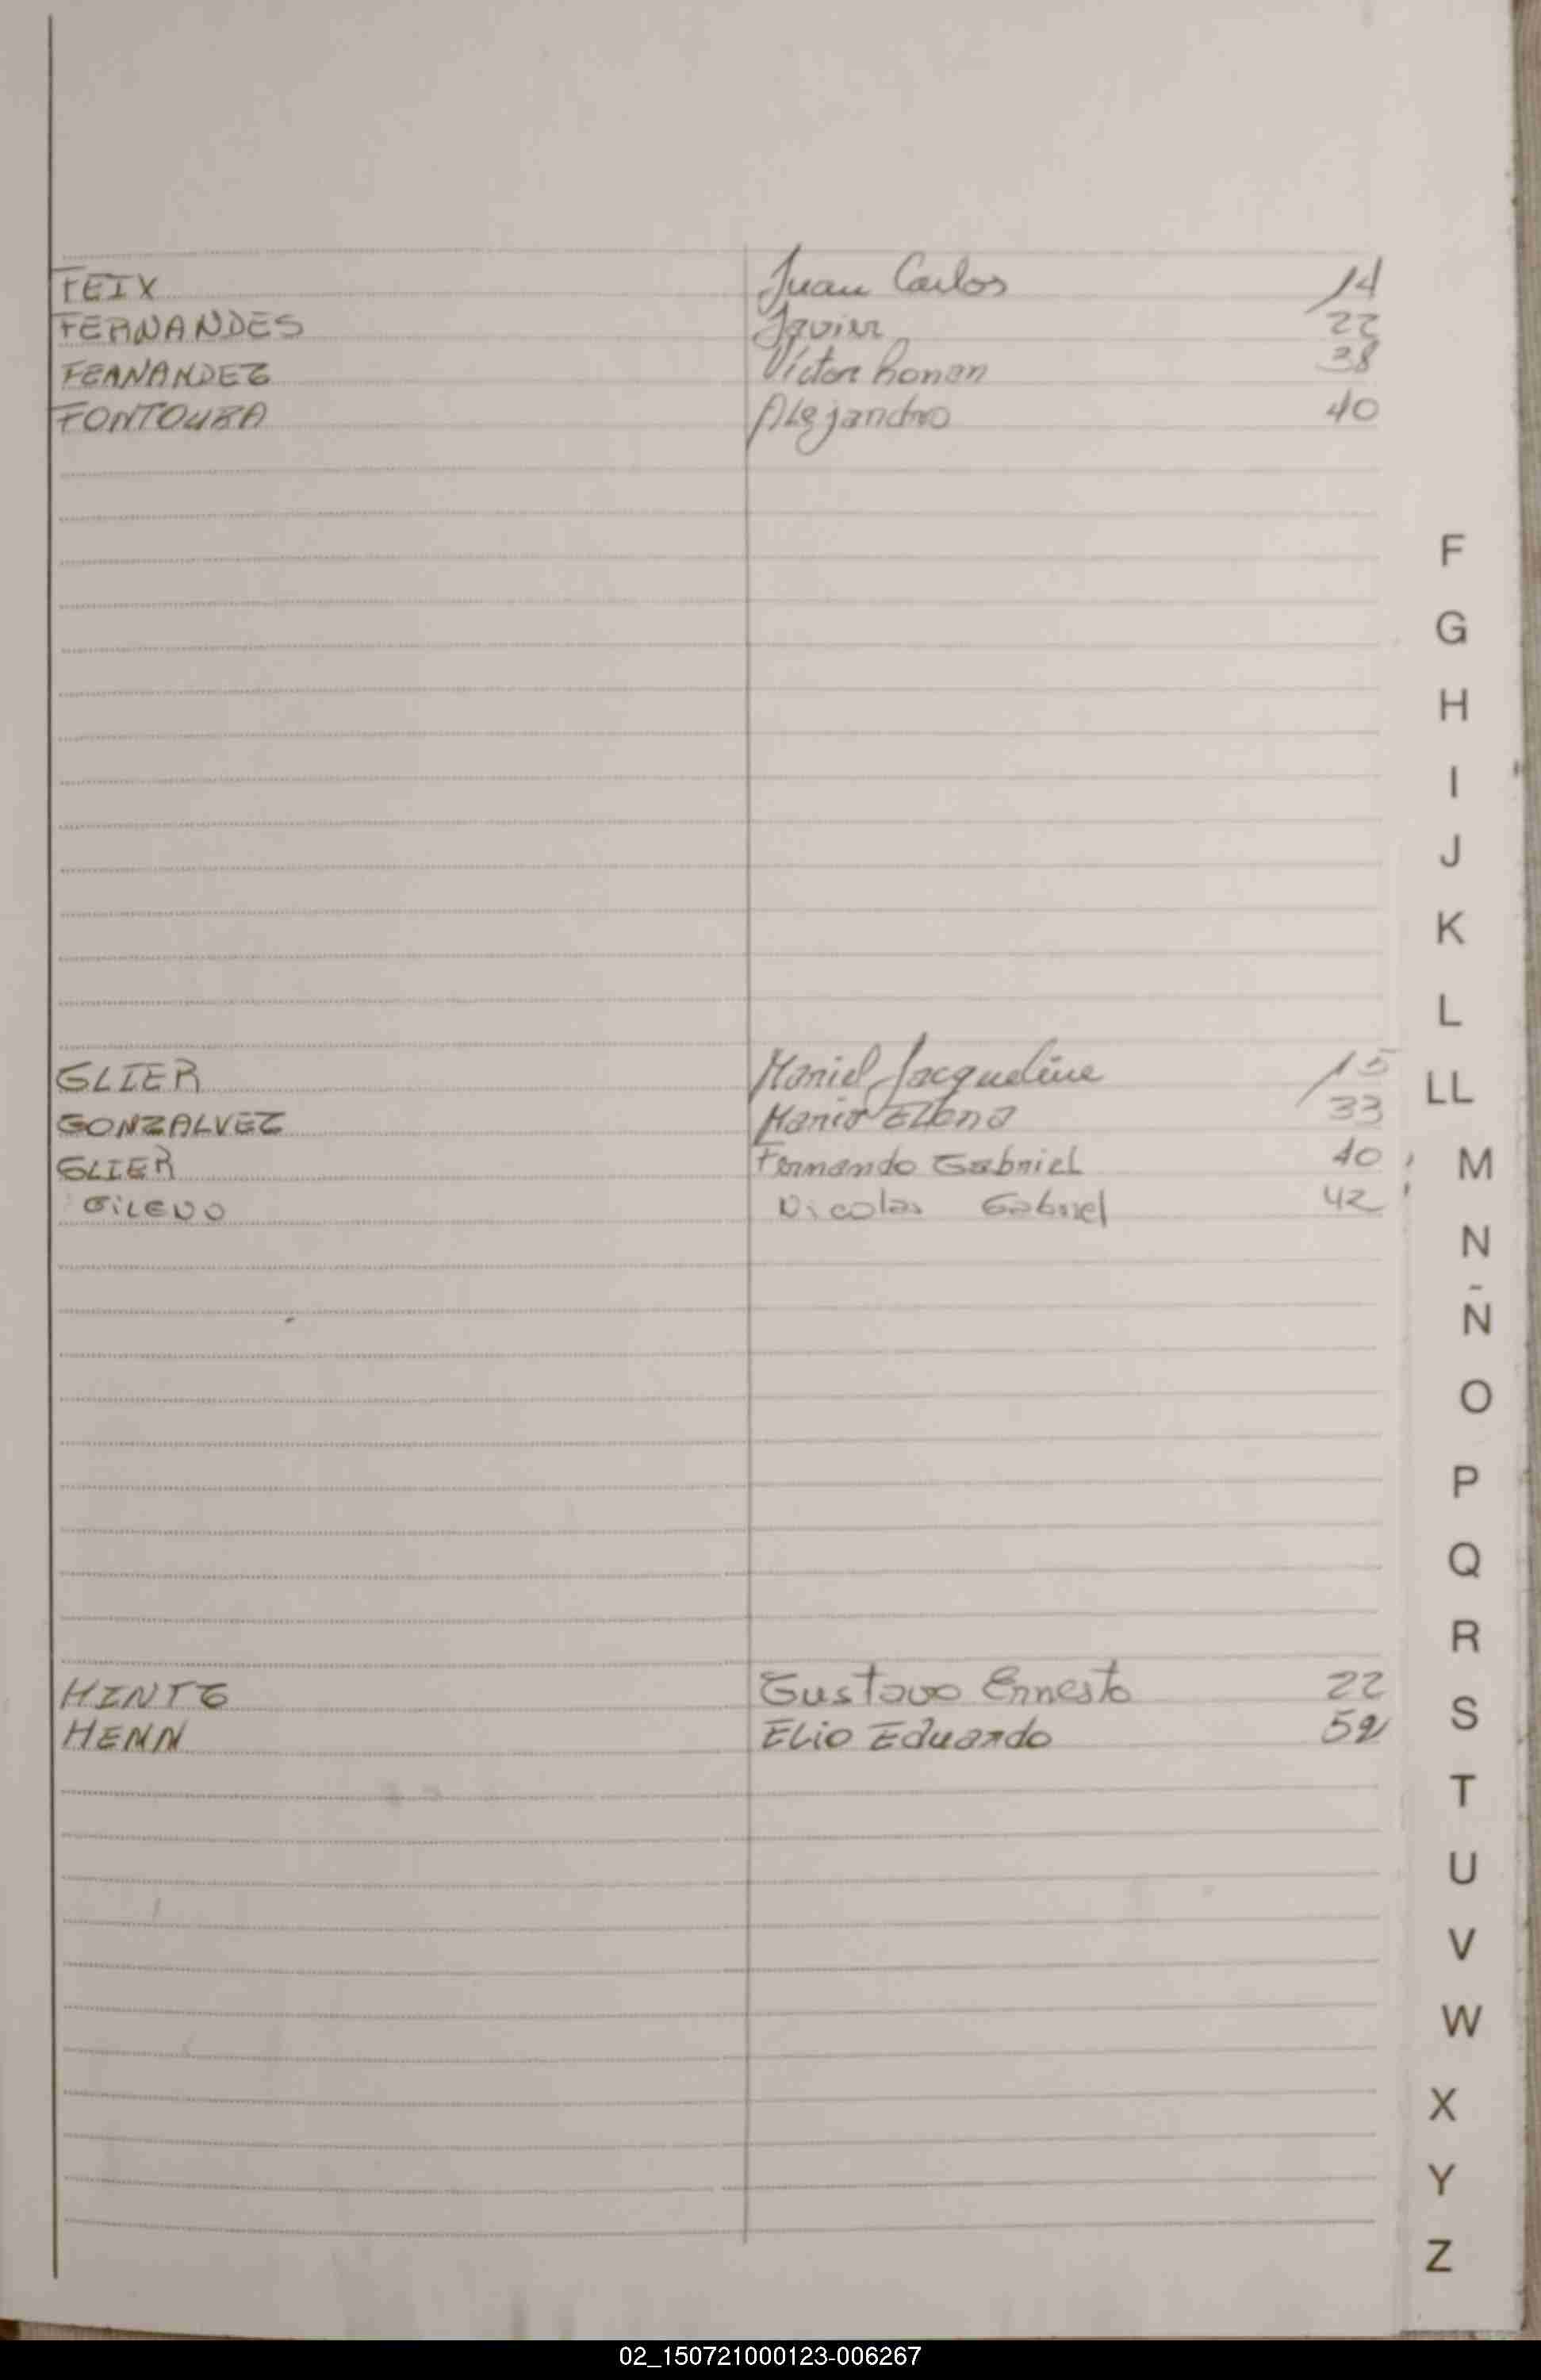 FEIX Juan Carlos 14
FERNANDES Javier 22
FERNANDEZ Victor Roman 38
FONTOURA Alejandro 40
F
G
H
I
J
K
L
GLIER Mariel Jacqueline 15
LL
GONZALVEZ Maria Elena 33
GLIER Fernando Gabriel 40
M
GILEVO Nicolas Gabriel 42
N
Ñ
O
P
Q
R
HINTZ Gustavo Ernesto 22
S
HENN Elio Eduardo 52
T
U
V
W
X
Y
Z
02_150721000123-006267